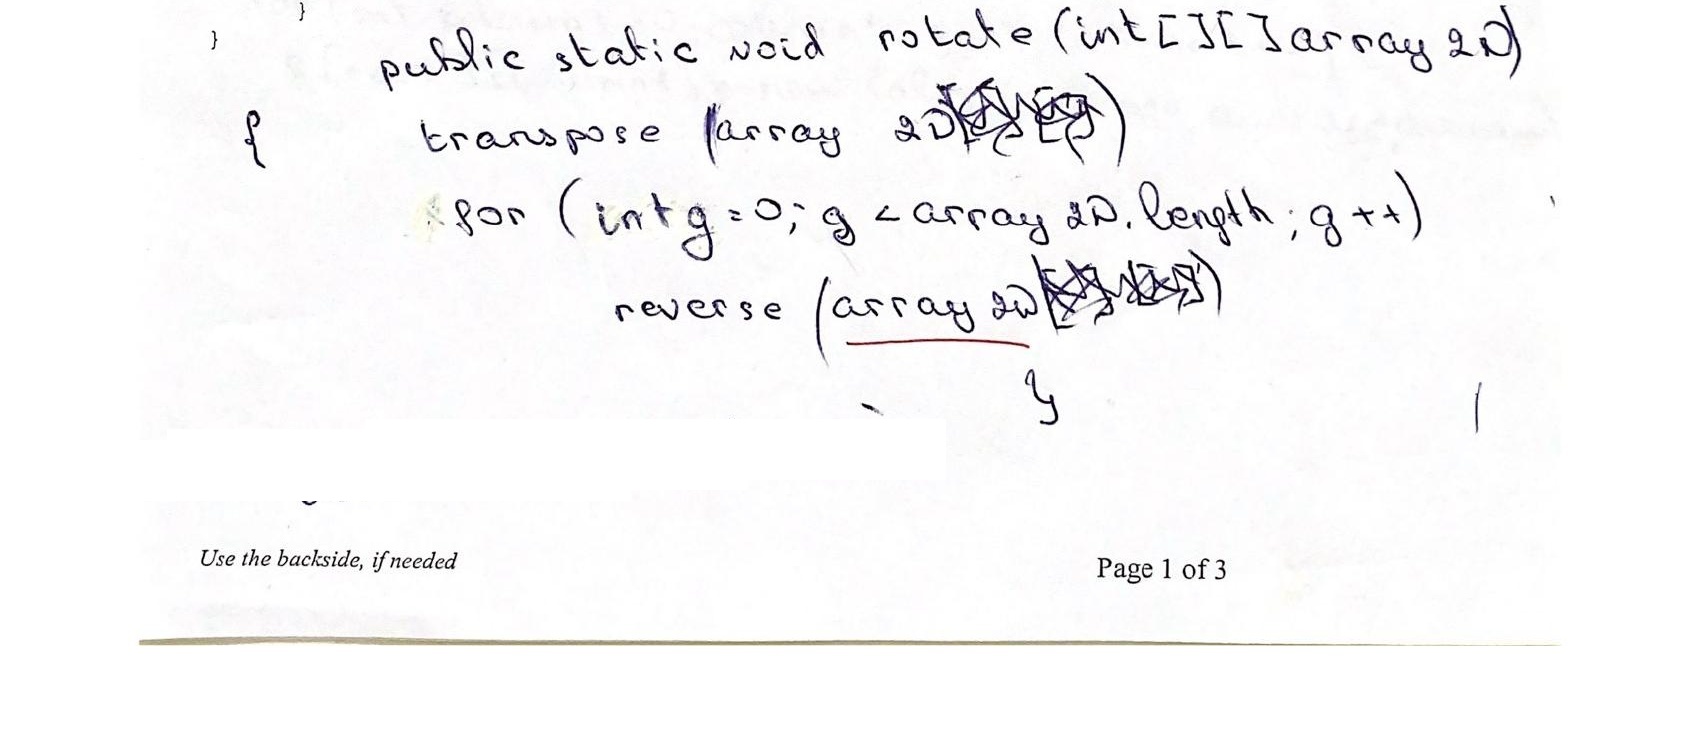 }
}
public static void rotate (int[][] array 2D)
{ transpose (array 2D)
for (int g = 0; g < array 2D. length; g ++)
reverse (array 2D)
}
Use the backside, if needed Page 1 of 3